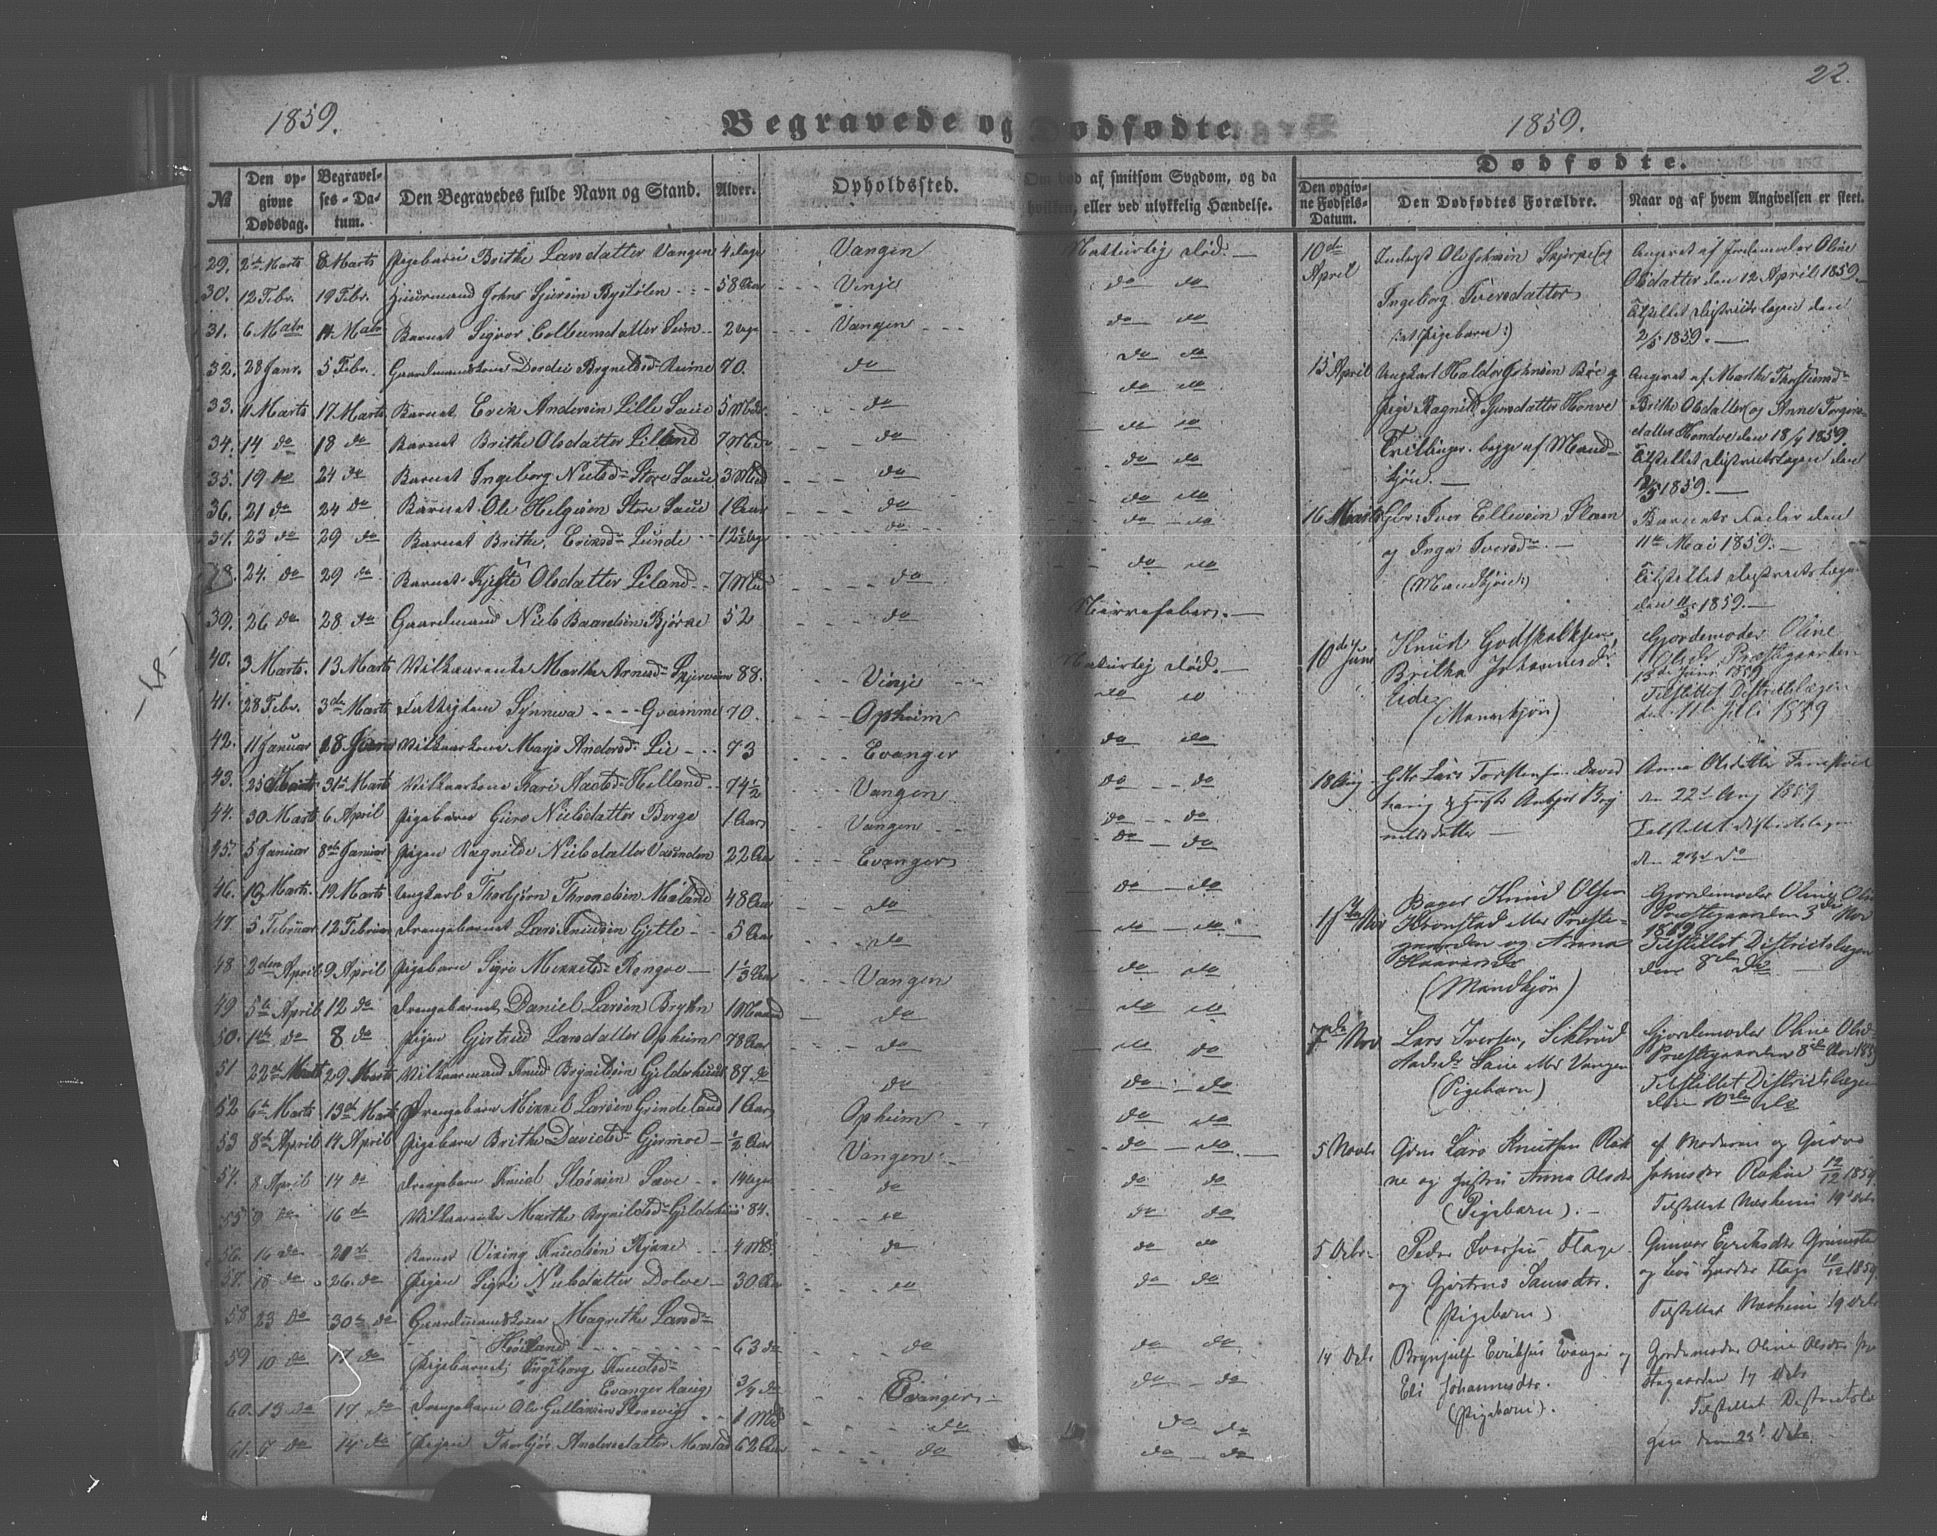 22.
1859.
Begravede og Dødfødte.
1859.
Dødfødte.
№
Den opgivne Dødsdag.
Begravelses-Datum.
Den Begravedes fulde Navn og Stand.
Alder.
Opholdssted.
Om død af smitsom Sygdom, og da hvilken, eller ved ulykkelig Hændelse.
Den opgivne Fødsels-Datum.
Den Dødfødtes Forældre.
Naar og af hvem Angivelsen er skeet.
29. 2den Marts 8 Marts Pigebarn Brithe Larsdatter Vangen 4 Dage Vangen Naturlig død.
30. 12 Febr. 19 Febr. Huusmand Johns Sjursen Bystølen 58 Aar Vinje do do
31. 6 Marts 14 Marts Barnet Sigvor Colbeinsdatter Seim 2 Uger Vangen do do
32. 28 Janr. 5 Febr. Gaardmandskone Dordei Brynildsd Reime 70. do do do
33. 11 Marts 17 Marts Barnet Erik Andersen Lille Saue 5 Mdr do do do
34. 14 do 18 do Barnet Brithe Olsdatter Lilland 7 Mdr do do do
35. 19 do 24 do Barnet Ingeborg Nielsd Store Saue 3 Mdr do do do
36. 21 do 24 do Barnet Ole Helgesen Store Saue 1 Aar do do do
37. 23 do 29 do Barnet Brithe Eriksd Lunde 12½ Uger do do do
38. 24 do 29 do Barnet Olsdatter Liland 7 Md do do do
39. 26 do 28 do Gaardmand Niels Baardsen Bjørke 52 do Nervefeber.
40. 3 Marts 13 Marts Vilkaarsenke Marthe Arnesd Skjerveim 88. Vinje Naturlig død.
41. 28 Febr. 3de Marts Synneva Gvamme 70. Opheim do do
42. 11 Januar 18 Janr Vilkaarskone Marjo Andersd Lie 73 Evanger do do
43. 25 Marts 31te Marts Vilkaarskone Kari Aadsd Helland 74½ Vangen do do
44. 30 Marts 6 April Pigebarn Guro Nielsdatter Berge 1 Aar Vangen do do
45. 5 Januar 8de Januar Pigen Ragnilde Nielsdatter 22 Aar Evanger do do
46. 13 Marts. 19 Marts Ungkarl Thorbjørn Throndsen Mæland 48 Aar do do do
47. 5 Februar 12 Februar Drengebarnet Lars Knudsen Gjelle 5 Aar do do do
48. 2den April 9 April Pigebarn Sigri Mikkelsd Rongve 1⅓ Aar Vangen do do
49 5te April 12 do Drengebarnet Daniel Larsen Brykn 1 Maaned do do do
50. 1te do 8 do Pigen Gjertrud Larsdatter Opheim 78 Aar do do do
51 22de Marts 29 Marts Vilkaarmand Knud Brynildsen Gilderhuus 87 do do do do
52 6te Marts 13de Marts Drengebarn Mikkel Larsen Grindeland 1 Aar Opheim do do
53 8de April 14 April Pigebarn Brithe Davidsd Gjerme ½ Aar Vangen do do
54. 8 April 14 do Drengebarn Knud Saue 14 Uger do do do
55 9 do 16 do Vilkaarsenke Marthe Brynildsd Gilderhuus 84. do do do
56. 16 do 20de Barnet Viking Knudsen Rjone 4 Md. do do do
57. 18 do 26. do Pigen Sigri Nielsdatter Dolve 30 Aar do do do
58 23 do 30te do Gaardmandskone Magrethe Larsd
Høiland 63 do do do do
59 10 do 17 do Pigebarnet Ingeborg Knudsd
Evangerhaug ¾ do Evanger do do
60. 13 do 17 do Drengebarn Ole Gullaksen 1 Md do do do
61. 7 do 14 do Pigen Thorbjør Andersdatter Mestad 62 Aar do do do
10de April
Inderst Ole Johnsen Skjerpe og
Ingeborg Iversdatter
(et Pigebarn:)
Angivet af Jordemoder Oline
Olsdatter den 12 April 1859.
Tilstillet Districtslægen den
2/5 1859.
15 April
Ungkarl Haldor Johnsen Bøe og
Pige Ragnild Sjursdatter Hønve
Tvillinger. begge af Mand-
kjøn.
Angivet af Marthe Thorsteinsd
Brithe Olsdatter og Anne Torgers-
datter Hondve den 18/4 1859.
Tilstillet Districtslægen den
2/5 1859.
16 Marts
Gbr: Iver Ellevsen Skeen
og Inga Iversd
(Mandkjøn)
Barnets Fader den
11te Mai 1859.
Tilstillet Districtslægen
den 11/5 1859.
10de Juni
Knud Godskalksen,
Britha Johannesd
Eide
(Mannkjøn)
Gjordemoder Oline
Olsdr Præstegaarden
13de Juni 1859
Tilstillet Districtslægen
den 11te Juli 1859
18 Aug
Gbr Lars Torstensen David
haug & Hustr Anbjør Bry
nildsdatter
Anna Olsdatter
den 22de Aug 1859
Tilstillet Districtslægen
den 23de do
1ste Nov
Bager Knud Olsen
Kronstad eller Præste-
gaarden og Anna
Haavarsdr
(Mandkjøn)
Gjordemoder Oline Ols
Præstegaarden 3de Nov
1859
Tilstillet Districtslægen
den 8de do
7de Nov
Lars Iversen, Siktrud
Saue eller Vangen
(Pigebarn)
Gjordemoder Oline Olsd
Præstegaarden 8de Nov 1859
Tilstillet Districtslægen
den 10de do
5 Novbr
Gbr Lars Knutsen Røk
ne og Hustru Anna Olsdr
(Pigebarn).
af Moderen og Gudve
Johnsdr Rokne 12/12 1859.
Tilstillet Nasheim 19de Decbr
5 Decbr
Peder Iversen Flage
og Gjertrud Samsdtr.
(Pigebarn)
Gunvor Eriksdtr Grimestad
og Flage 10/12 1859.
Tilstillet Nasheim 19 Decbr
14 Decbr
Brynjulf Eriksen Evanger og
Eli Johannesdtr.
(Pigebarn).
Gjordemoder Oline Olsdtr Præ
stegaarden 17 Decbr
Tilstillet Districtslæ
gen den 23de Decbr